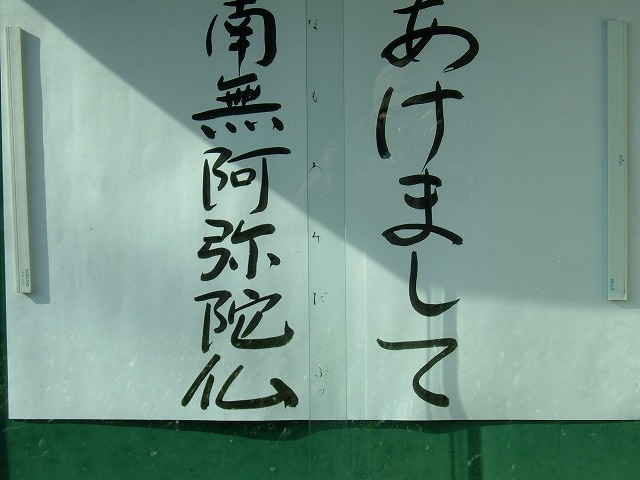 あけまして
なもあみだぶつ
南無阿弥陀仏